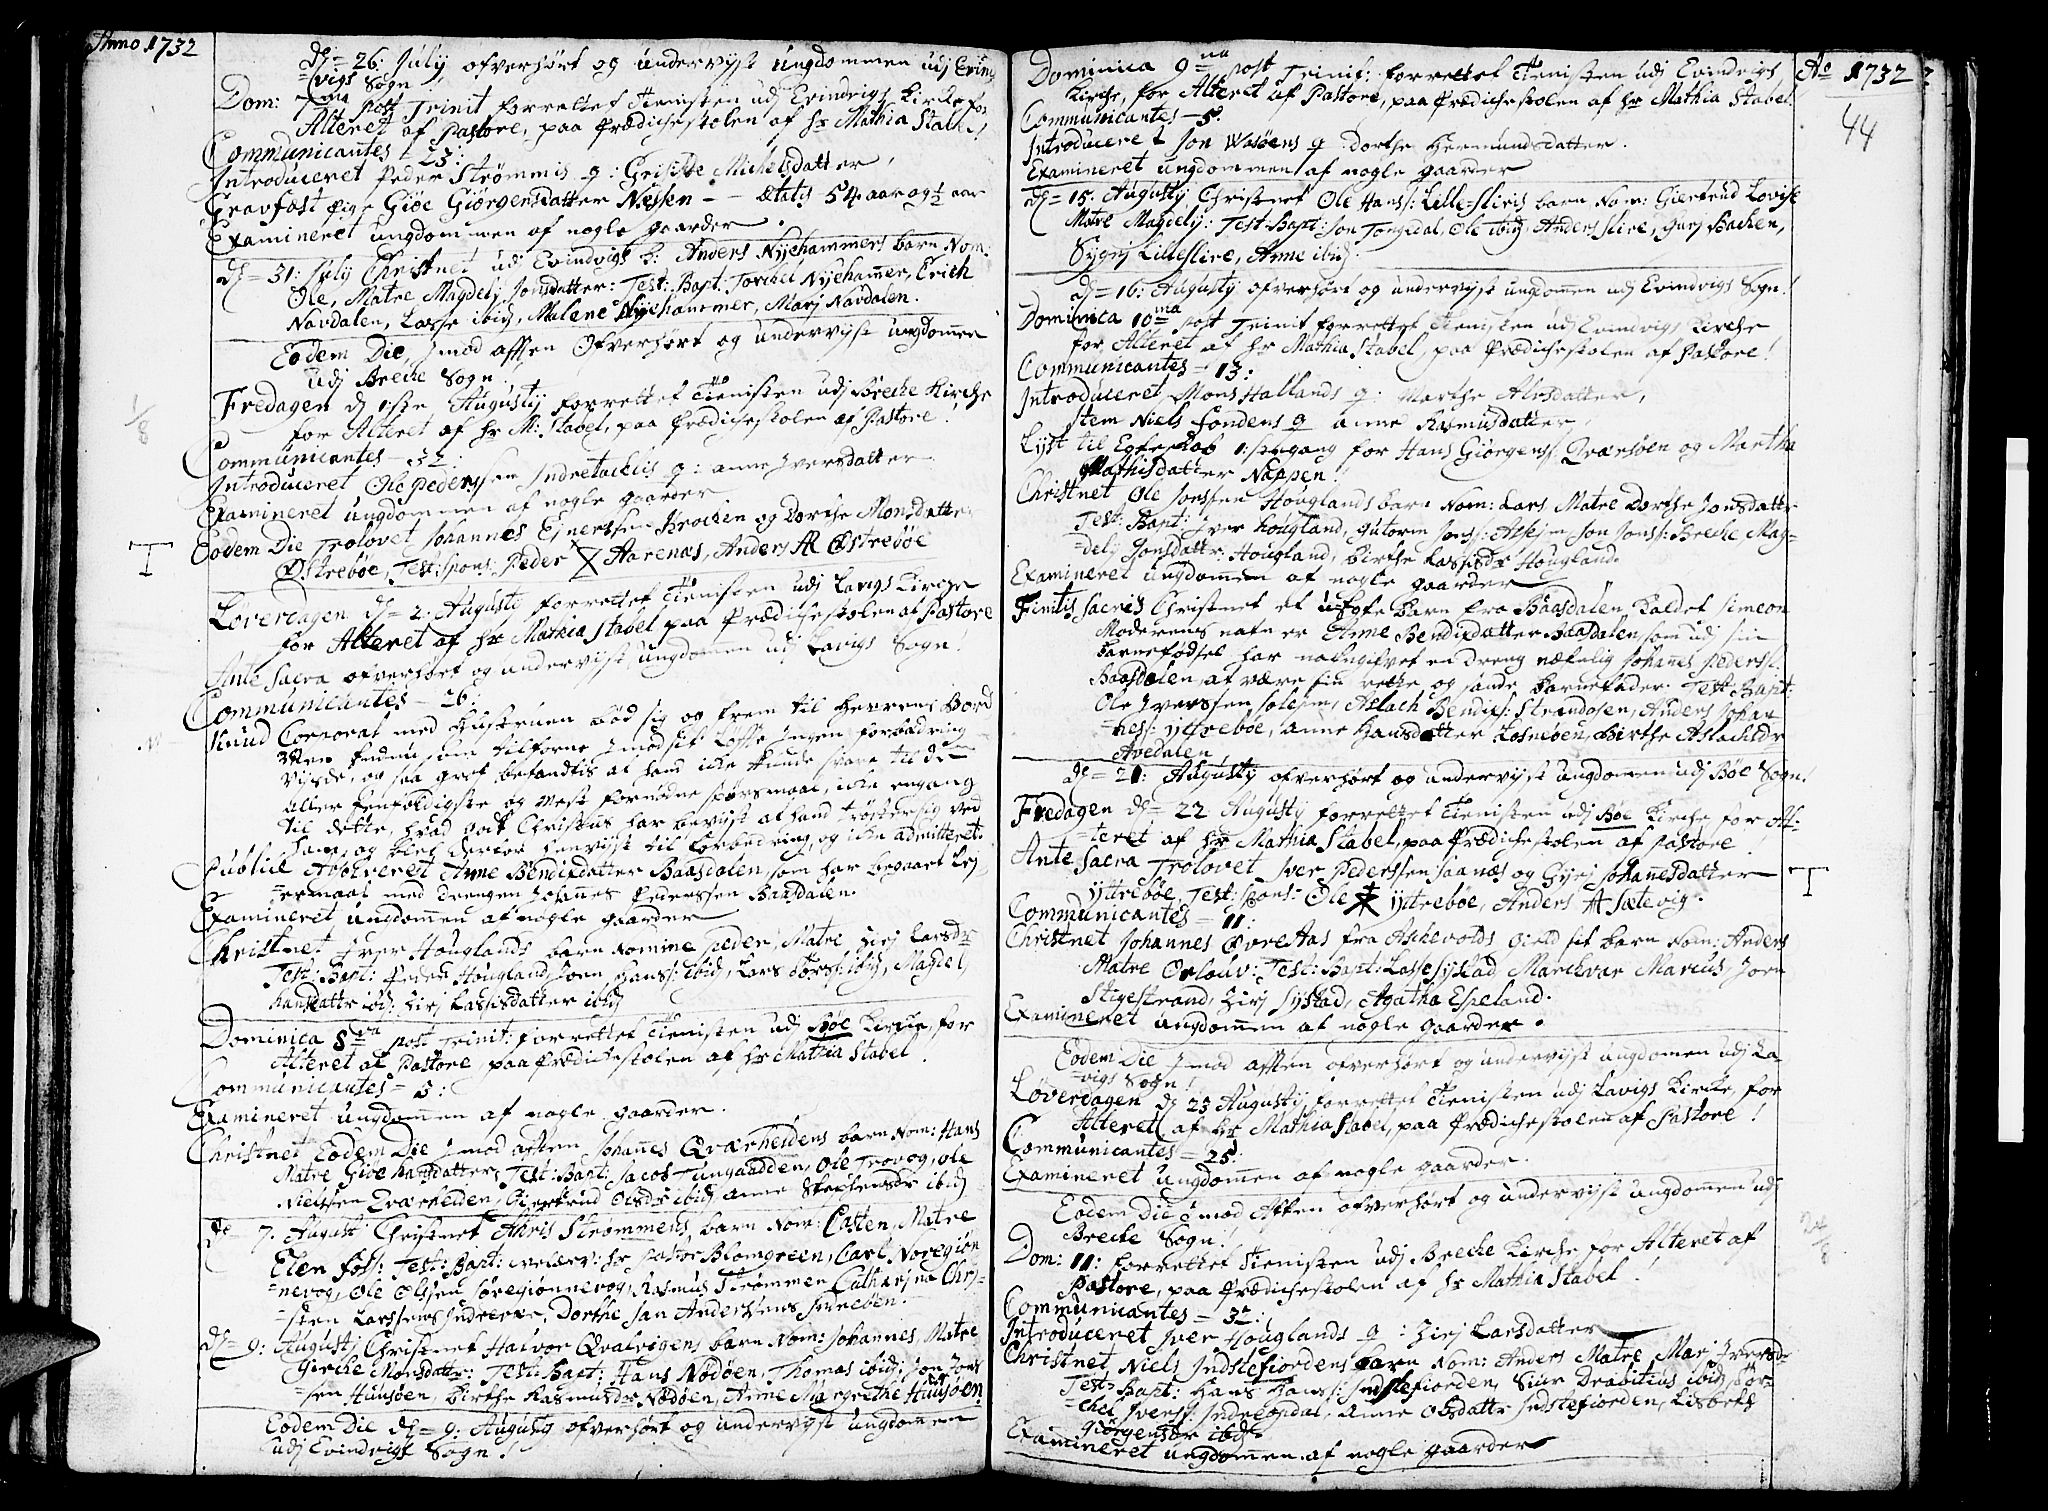 Anno 1732
d. 26. July ofverhørt og underviist ungdommen udj Evind=
=vigs Sogn
Dom: 7ma post Trinit forrettet Tienisten udj Evindvigs Kircke for
Alteret af Pastore, paa Prædichestolen af hr Mathia Stabel
Communicantes - 23:
Introduceret Peder Strømmis q: Grisilde Michelsdatter,
Gravfæst Pige Giøe Giørgensdatter Nissen - - Ætatis 54 aar og ½ aar
Examineret ungdommen af nogle gaarder
d = 31: July Christnet udj Evindvigs k: Anders Nyehammers barn Nom:
Ole, Matre Magdelj Jonsdatter: Test: Bapt: Torchel Nyehamer, Erich
Navdalen, Lasse ibid, Malene Nyehammer, Marj Navdalen.
Eodem Die, jmod afften Ofverhørt og underviist ungdommen
udj Breche Sogn.
Fredagen d 1:ste Augustij forrettet Tienisten udj Breche Kirche
for Alteret af hr M: Stabel, paa Prædichestolen af Pastore!
1/8
Communicantes - 32:
Introduceret Ole Pederssen Indretachlis q: anne Iversdatter
Examineret ungdommen af nogle gaarder
Eodem Die Trolovet Johannes Ejnerssen Brochen og Dorthe Monsdatter
T
Østrebøe, Test: Spons: Peder X Aarenæs, Anders Æ Østrebøe
Løverdagen d = 2: Augusty forrettet Tienisten udj Lavigs Kirche
for Alteret af hr Mathia Stabel paa Prædichestolen af Pastore
Ante Sacra ofverhørt og underviist ungdomen udj Lavigs Sogn!
Communicantes - 26:
Knud Corporal med Hustruen bød sig og frem til Herrens Bord
Men som tilforne jmod sit Løffte Ingen forbædring
viisde, og saa grof befandtis at hand icke kunde svare til de
aller Eenfoldigste og mest fornødne spørsmaal, icke engang
til dette, hvad godt Christus har beviist at hand trøster sig ved
ham, og blef derfor henviist til forbedring, og icke admitteret.
Publicè Absolveret Anne Bendixdatter Baasdalen, som har begaaet Lej=
=ermaal med drengen Johannes Pederssen Baasdalen.
Examineret ungdommen af nogle gaarder
Christnet Iver Houglands barn Nomine Peder, Matre Zirj Larsdr
Test: Bapt: Peder Hougland, Joen Hanss: ibid, Lars Larss: ibid, Magdelj
Hansdattr ibd: Zirj Lassisdatter ibid
Dominica 8va post Trinit: forrettet Tienisten udj Bøe Kirche, for
Alteret af Pastore, paa Prædichestolen af hr Mathia Stabel.
Communicantes - 5:
Examineret ungdommen af nogle gaarder.
Christnet Eodem Die jmod aften Johanes Qværheidens barn Nom: Hans
Matre Giøe Hansdatter, Test: Bapt: Jacob Tungaadden, Ole Trovog, Ole
Nielssen Qværheiden, Giertrud Olsdr ibid anne Stephensdr ibid
d = 7. August Christnet Ahris Strømmens barn Nom: Casten, Matre
Elen Foss: Test: Bapt: hr Pastor Blomgreen, Carl Noregiøn=
=nevog, Ole Olssen Søregiønnevog, Rasmus Strømmen Catharina Chri=
=sten Larssens Indreere, Dorthe Jan Anderssens
d = 9: Augustj Christnet Halvor Qvalvigens barn Nom: Johannes, Matre
Giertie Monsdatter: Test: Bapt: Hans Nødøen, Thomas ibid, Jon Jons=
=sen Huusøen, Birthe Rasmusdr Nødøen, Anne Margrethe Huusøen
Eodem Die d = 9: Augusty ofverhørt og underviist ungdommen
udj Evindvigs Sogn!
Dominica 9na post Trinit: forrettet Tienisten udj Evindvigs
Kirche, for Alteret af Pastore, paa Prædichestolen af hr Mathia Stabel.
Ao 1732
44
Communicantes - 5.
Introduceret Jon Wasøens q Dorthe Hermundsdatter.
Examineret ungdommen af nogle gaarder
d = 15: Augusty Christnet Ole Hanss: Lille-Sliris barn Nom: Giertrud Lovise
Matre Magdelj: Test: Bapt: Jon Tongedal, Ole ibid, Anders Slire, Gurj Bachen,
Sygnj Lilleslire, Anne ibid.
d = 16: Augusty ofverhørt og underviist ungdomen udj Evindvigs Sogn!
Dominica 10ma post Trinit forrettet Tienisten udj Evindvigs Kirche
for Alteret af hr Mathia Stabel, paa Prædichestolen af Pastore!
Communicantes - 13:
Introduceret Mons Hallands q: Marthe Alvsdatter,
Item Niels Sondens q anne Rasmusdatter,
Lyst til Egteskab 1:ste gang for Hans Giørgenss: Qværsøen og Martha
Mathisdatter Nappen!
Christnet Ole Jonssen Houglands barn Nom: Lars Matre Dorthe Jonsdatter
Test: Bapt: Iver Hougland, Gutorm Jonss: Alsejm Jon Jonss: Breche Mag=
=delj Jonsdattr: Hougland, Birthe Lassisdr Hougland.
Examineret ungdomen af nogle gaarder
Finitis Sacris Christnet et u-Egte barn fra Baasdalen, kaldet Simeon
Moderens nafn er Anne Bendixdatter Baasdalen, som udj sin
barnefødsel har nafngifvet en dreng næfnlig Johannes Pederss:
Baasdalen, at være sin rette og sande barnefader. Test: Bapt:
Ole Iverssen Solejm, Aslach Bendixs: Strandosen, Anders Johan=
=nes: Yttrebøe, anne Hansdatter Losneøen, Birthe Aslachsdr
Avedalen
d = 21: Augusty ofverhørt og underviist ungdomen udj Bøe Sogn!
Fredagen d = 22 Augusty forrettet Tienisten udj Bøe Kirche, for Al=
=teret af hr Mathia Stabel, paa Prædichestolen af Pastore.
Ante Sacra Trolovet Iver Pederssen Saanæs og Gyrj Johanesdatter
T
Yttrebøe, Test: Spons: Ole X Yttrebøe, Anders Æ Sætevig.
Communicantes - 11:
Christnet Johannes Øvre Aas fra Aschevolds gield sit barn Nom: Anders
Matre Orlouv: Test: Bapt: Lasse Systad, Marchvar Marcus, Joen
Stigestrand, Zirj Systad, Agatha Espeland.
Examineret ungdommen af nogle gaarder.
Eodem Die jmod afften ofverhørt og underviist ungdomen udj La=
=vigs Sogn!
Løverdagen d 23 Augustij forrettet Tienisten udj Lavigs Kirche for
Alteret af hr Mathia Stabel, paa Prædichestolen af Pastore!
Communicantes - 25:
Examineret ungdomen af nogle gaarder.
Eodem Die jmod Aften ofverhørt og underviist ungdommen udj
Breche Sogn!
24/8
Dom: 11: forrettet Tienisten udj Breche Kirche for Alteret af
Pastore, paa Prædichestolen af hr Mathia Stabel!
Communicantes - 32:
Introduceret Iver Houglands q: Zirj Larsdatter
Christnet Niels Indstefiordens barn Nom: Anders Matre Marj Iversd=
Test: Bapt: Hans Hanss: Indstefiorden, Siur Drabitius ibid, Tor=
=chel Iverss: Indreopdal, Anne Olsdattr Indstefiorden, Lisbeth
Giørgensdr ibid.
Examineret ungdommen af nogle gaarder